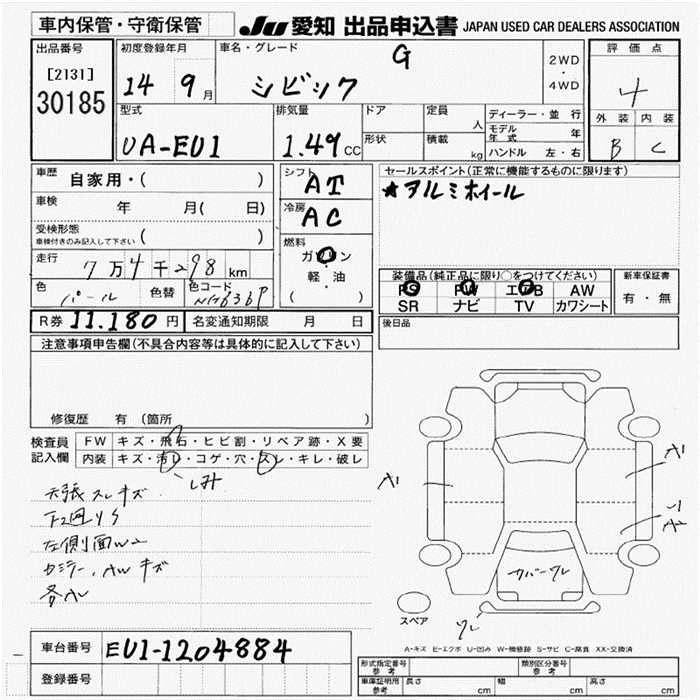 車内保管・守衛保管
JU 愛知 出品申込書 JAPAN USED CAR DEALERS ASSOCIATION
出品番号
[2131]
30185
初度登録年月
14 9 月
車名・グレード
G
シビック
2WD
・
4WD
評価点
4
外装 内装
B C
型式
UA-EU1
排気量
1.49 CC
ドア
形状
定員
人
積載
kg
ディーラー・並行
モデル年式 年
ハンドル 左・右
車歴
自家用・( )
車検 年 月( 日)
受検形態
車検付きのみ記入して下さい ( )
走行
7万4千298 km
色
パール
色替
色コード
シフト
AT
冷房
AC
燃料
ガソリン
軽・油
( )
セールスポイント(正常に機能するものに限ります)
★アルミホイール
装備品(純正品に限り○をつけてください)
PS PW エアB AW
SR ナビ TV カワシート
新車保証書
有・無
後日品
R券 11.180 円
名変通知期限 月 日
注意事項申告欄(不具合内容等は具体的に記入して下さい)
修復歴 有 (箇所 )
検査員
記入欄
FW キズ・飛石・ヒビ割・リペア跡・X要
内装 キズ・汚レ・コゲ・穴・スレ・キレ・破レ
シミ
天張スレキズ
左側面W2
カミラー、AWキズ
A1
A1
A2
カバーワレ
ワレ
スペア
A-キズ E-エクボ U-凹み W-補修跡 S-サビ C-腐食 XX-交換済
車台番号
EU1-1204884
登録番号
形式指定番号
参考
類別区分番号
参考
車庫証明用
参考
長さ cm
幅 cm
高さ cm